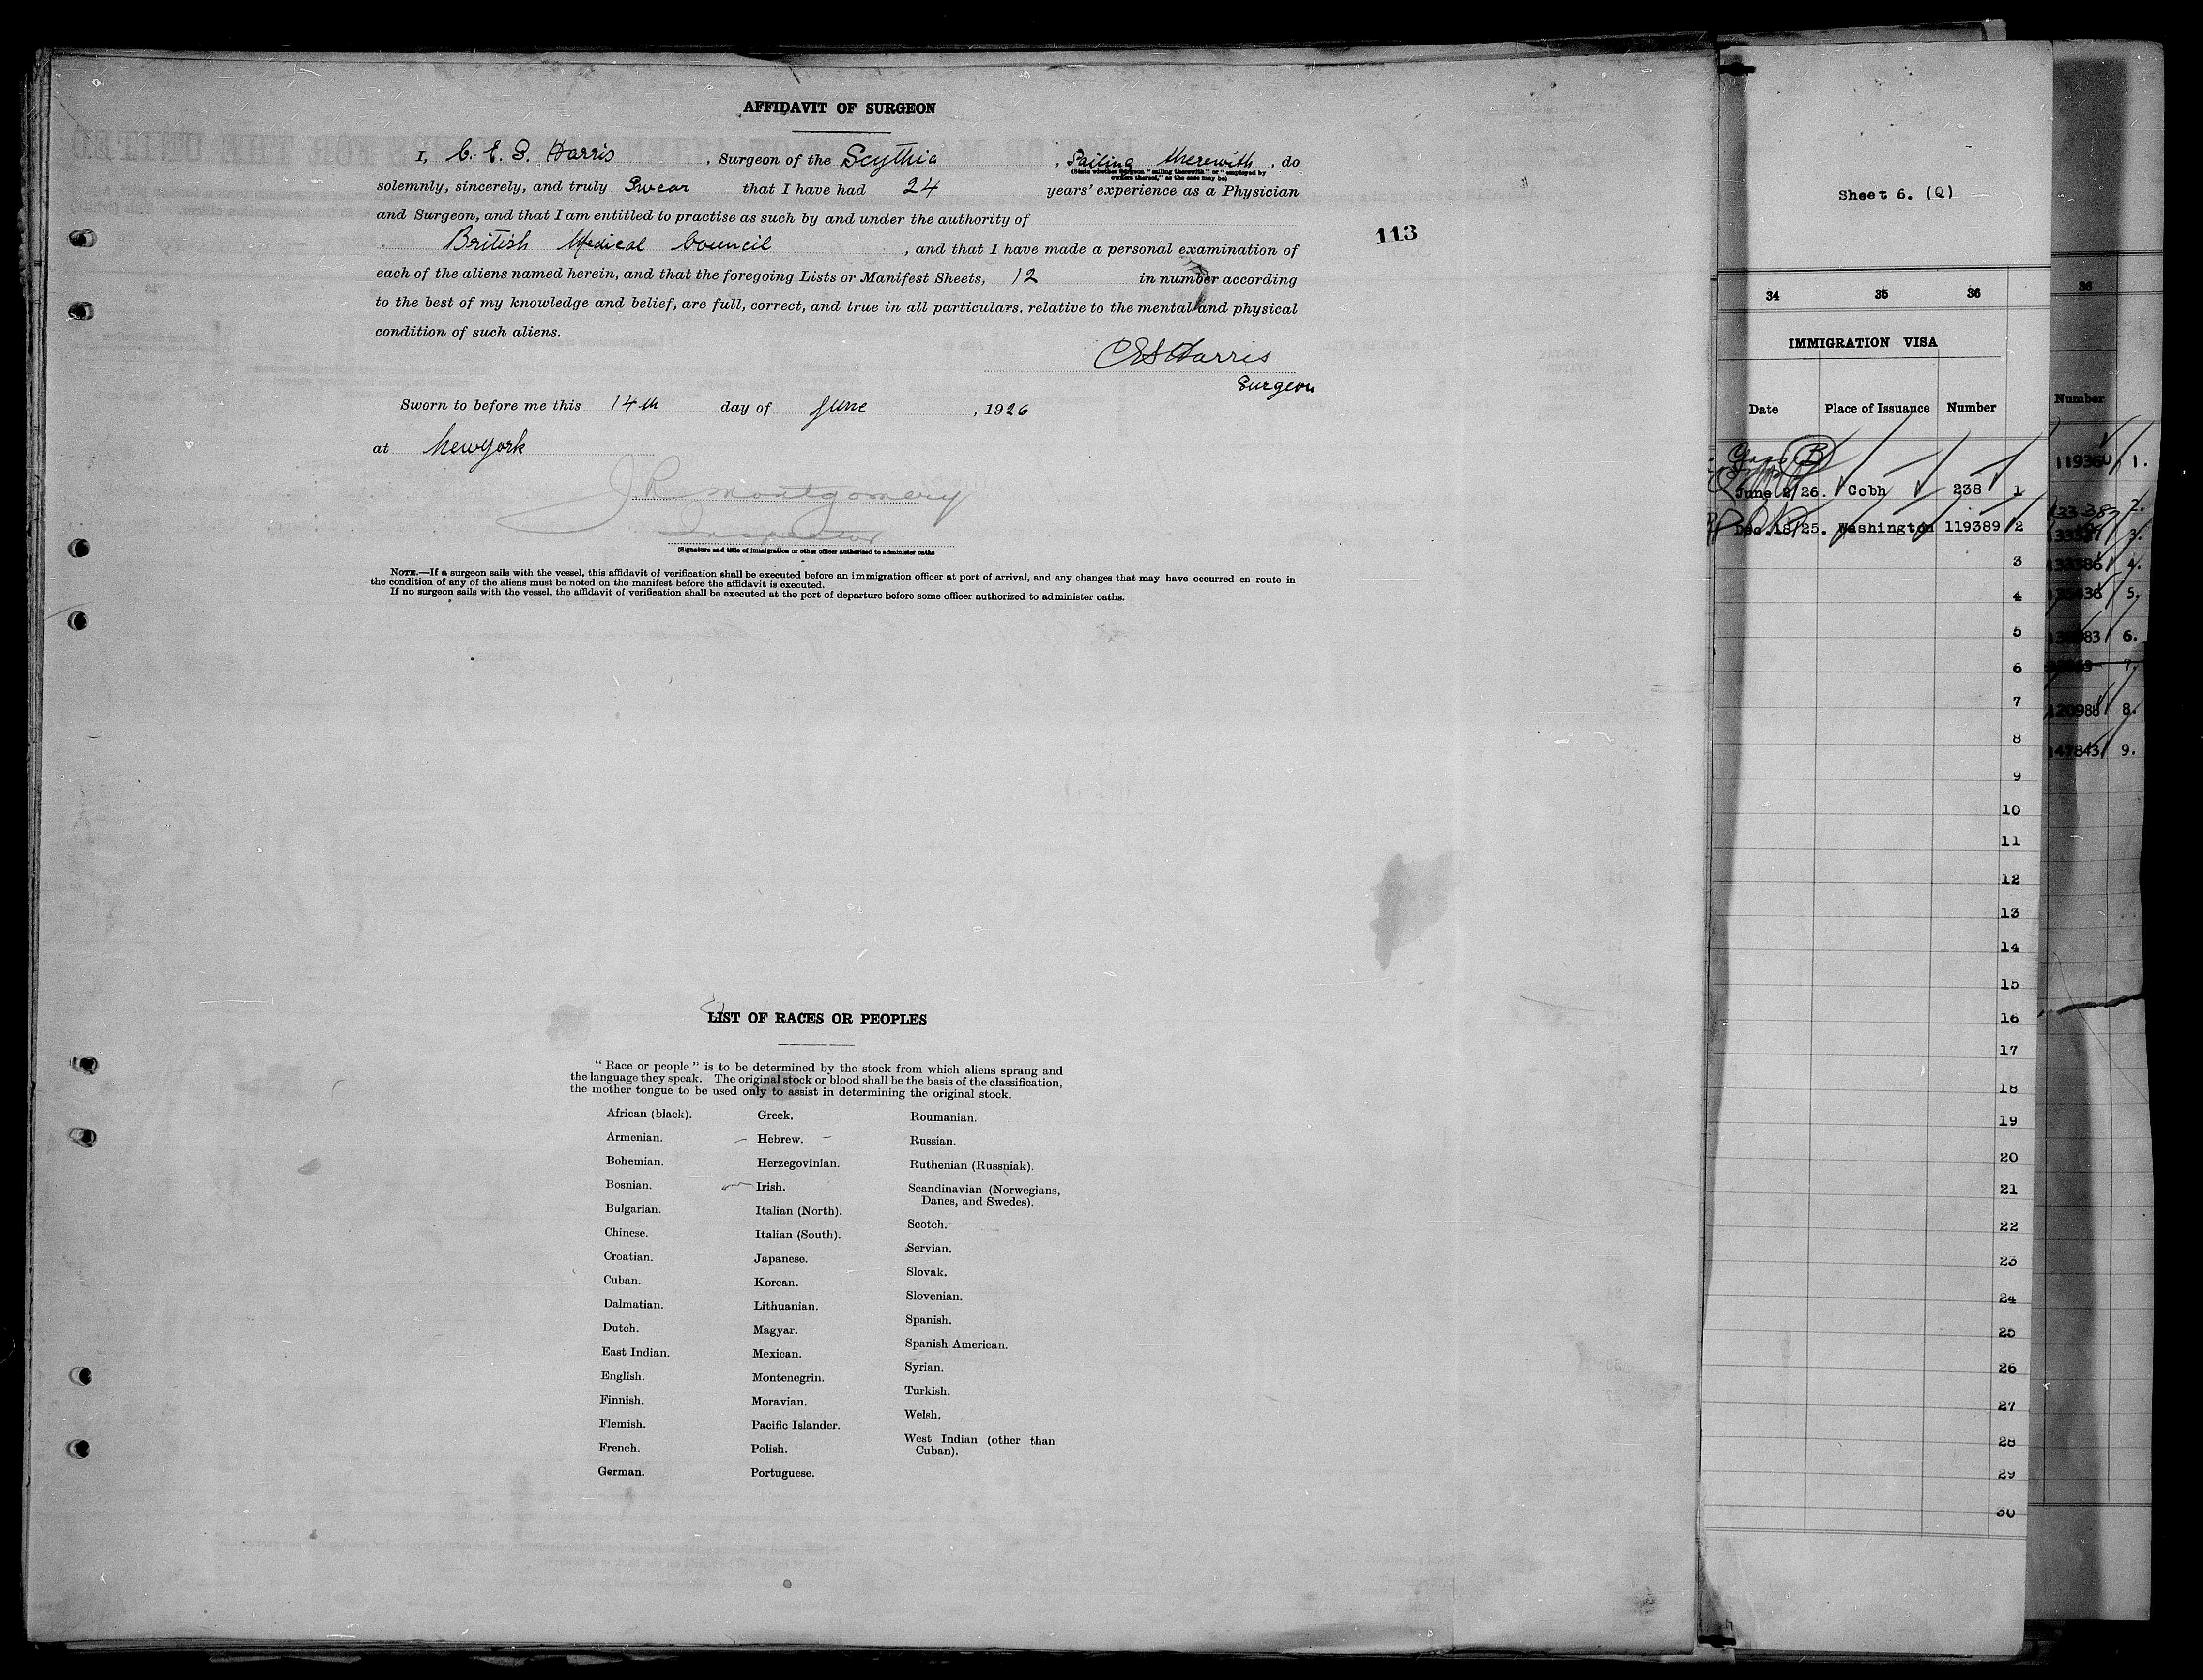 AFFIDAVIT OF SURGEON
I, C. E. S. Harris, Surgeon of the Scythia, Sailing therewith, do
(State whether Surgeon "sailing therewith" or "employed by
owners thereof," as the case may be)
solemnly, sincerely, and truly Swear that I have had 24 years' experience as a Physician
and Surgeon, and that I am entitled to practise as such by and under the authority of
British Medical Council, and that I have made a personal examination of
each of the aliens named herein, and that the foregoing Lists or Manifest Sheets, 12 in number according
to the best of my knowledge and belief, are full, correct, and true in all particulars. relative to the mental and physical
condition of such aliens.
CES Harris
Surgeon
Sworn to before me this 14th day of June, 1926
at New York
Montgomery
Inspector
(Signature and title of immigration or other officer authorized to administer oaths
NOTE.—If a surgeon sails with the vessel, this affidavit of verification shall be executed before an immigration officer at port of arrival, and any changes that may have occurred en route in
the condition of any of the aliens must be noted on the manifest before the affidavit is executed.
If no surgeon sails with the vessel, the affidavit of verification shall be executed at the port of departure before some officer authorized to administer oaths.
113
LIST OF RACES OR PEOPLES
"Race or people" is to be determined by the stock from which aliens sprang and
the language they speak. The original stock or blood shall be the basis of the classification,
the mother tongue to be used only to assist in determining the original stock.
African (black).
Armenian.
Bohemian.
Bosnian.
Bulgarian.
Chinese.
Croatian.
Cuban.
Dalmatian.
Dutch.
East Indian.
English.
Finnish.
Flemish.
French.
German.
Greek.
Hebrew.
Herzegovinian.
Irish.
Italian (North).
Italian (South).
Japanese.
Korean.
Lithuanian.
Magyar.
Mexican.
Montenegrin.
Moravian.
Pacific Islander.
Polish.
Portuguese.
Roumanian.
Russian.
Ruthenian (Russniak).
Scandinavian (Norwegians,
Danes, and Swedes).
Scotch.
Servian.
Slovak.
Slovenian.
Spanish.
Spanish American.
Syrian.
Turkish.
Welsh.
West Indian (other than
Cuban).
Sheet 6. (Q)
34 35 36
IMMIGRATION VISA
Date Place of Issuance Number
B
June 2/26. Cobh 238 1
Dec. 18/25. Washington 119389 2
3
4
5
6
7
8
9
10
11
12
13
14
15
16
17
18
19
20
21
22
23
24
25
26
27
28
29
30
36
Number
1.
2.
3.
133386 4.
5.
6.
7.
120988 8.
147843 9.